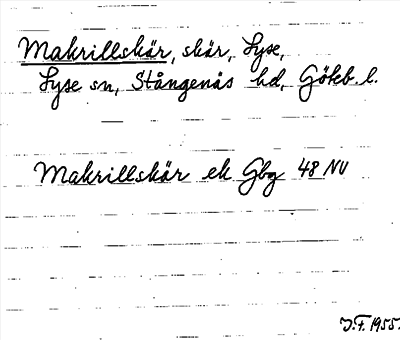 Makrillskär, skär, Lyse,
Lyse sn, Stångenäs hd, Göteb. l.
Makrillskär ek Gbg 48 NV
J.F. 1955.